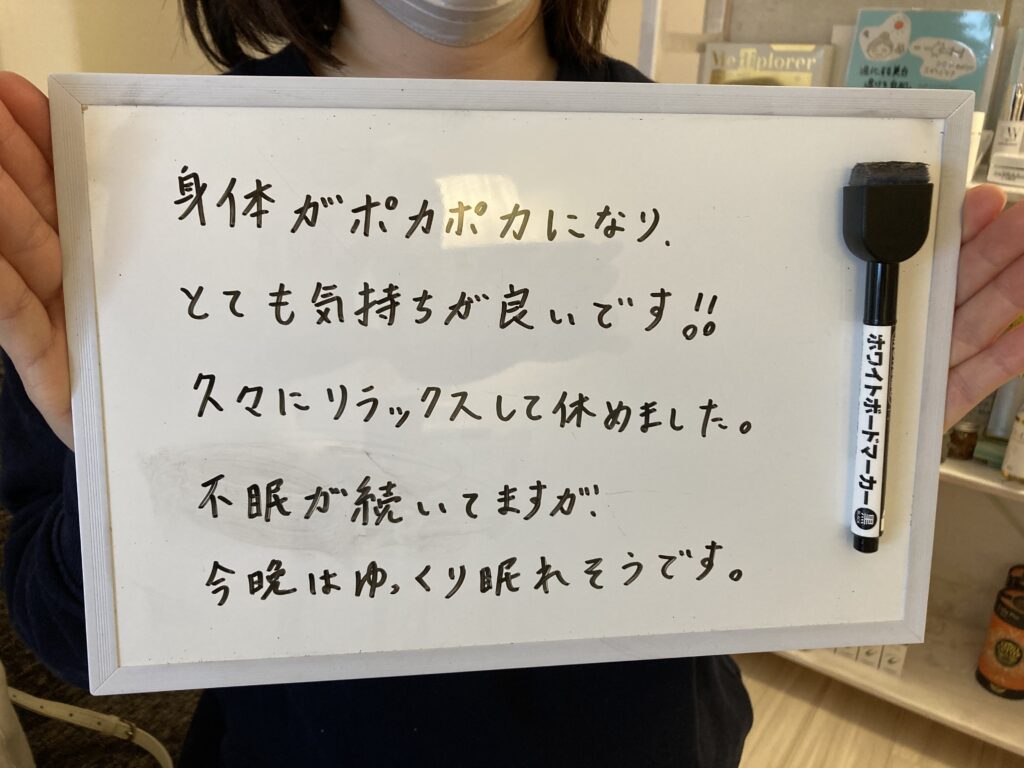 身体がポカポカになり、
とても気持ちが良いです!!
久々にリラックスして休めました。
不眠が続いてますが、
今晩はゆっくり眠れそうです。
ホワイトボードマーカー 黒
Me
plorer